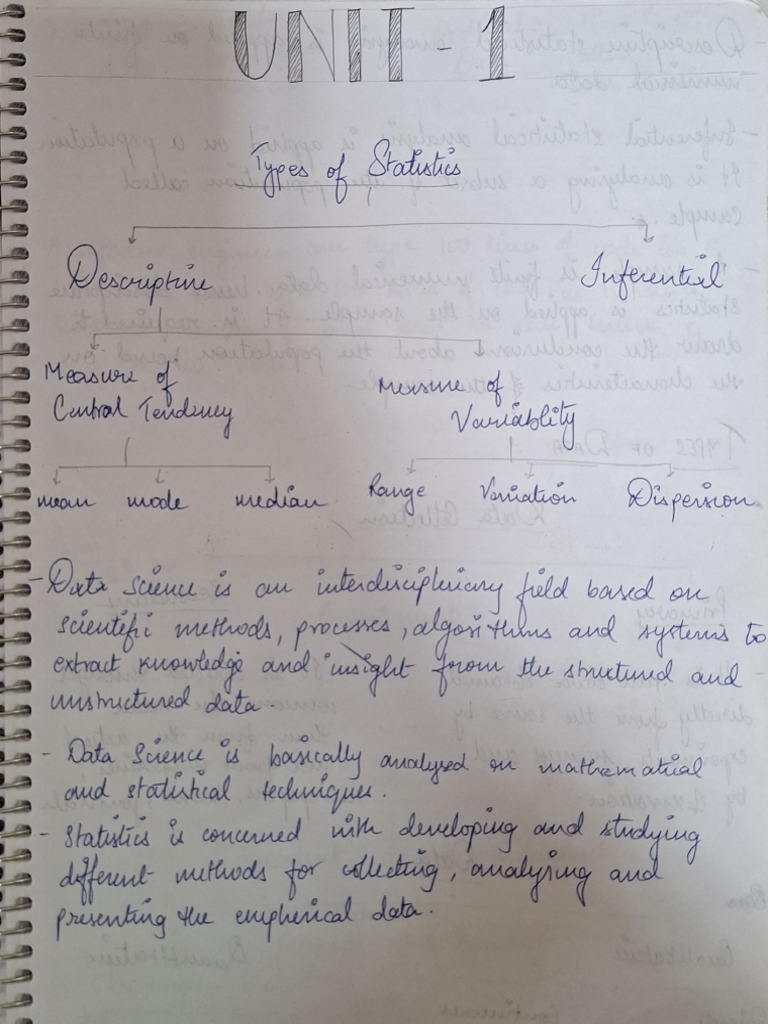 UNIT - 1
Types of Statistics
Descriptive Inferential
Measure of
Central Tendency
Measure of
Variablity
mean mode median Range Variation Dispersion
- Data Science is an interdisciplinary field based on
scientific methods, processes, algorithms and systems to
extract knowledge and insight from the structured and
unstructured data.
- Data Science is basically analysed on mathematical
and statistical techniques.
- Statistics is concerned with developing and studying
different methods for collecting, analysing and
presenting the empherical data.